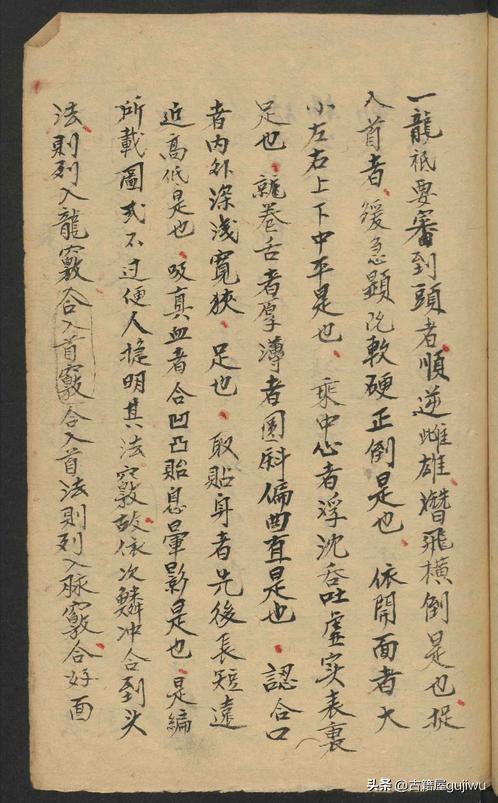 一龍祗要審到頭者順逆雌雄潛飛橫倒是也捉
入首者緩急顯隐軟硬正倒是也依開面者大
小左右上下中平是也乘中心者浮沈吞吐虛实表裏
足也龍卷舌者厚薄者圓斜偏曲直是也認合口
者内外深淺寬狹足也取貼身者先後長短遠
近高低是也吸真血者合凹凸貽息暈影是也是編
所載圖式不过便人提明其法竅故依次鱗冲合到头
法則列入龍竅合入首竅合入首法則列入脉竅合好面
头条@古籍屋gujiwu